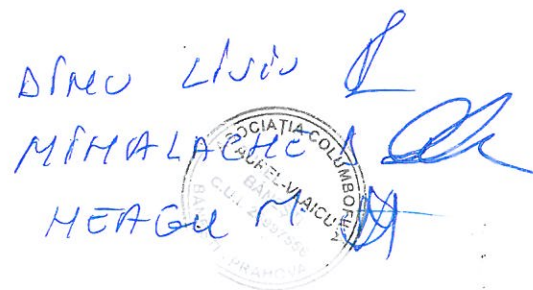 DIMU LIVIU
MIHALACHE I
NEAGU M
ASOCIAȚIA COLUMBOFILĂ
"AUREL-VLAICU"
BĂNEȘTI
C.U.I.
PRAHOVA